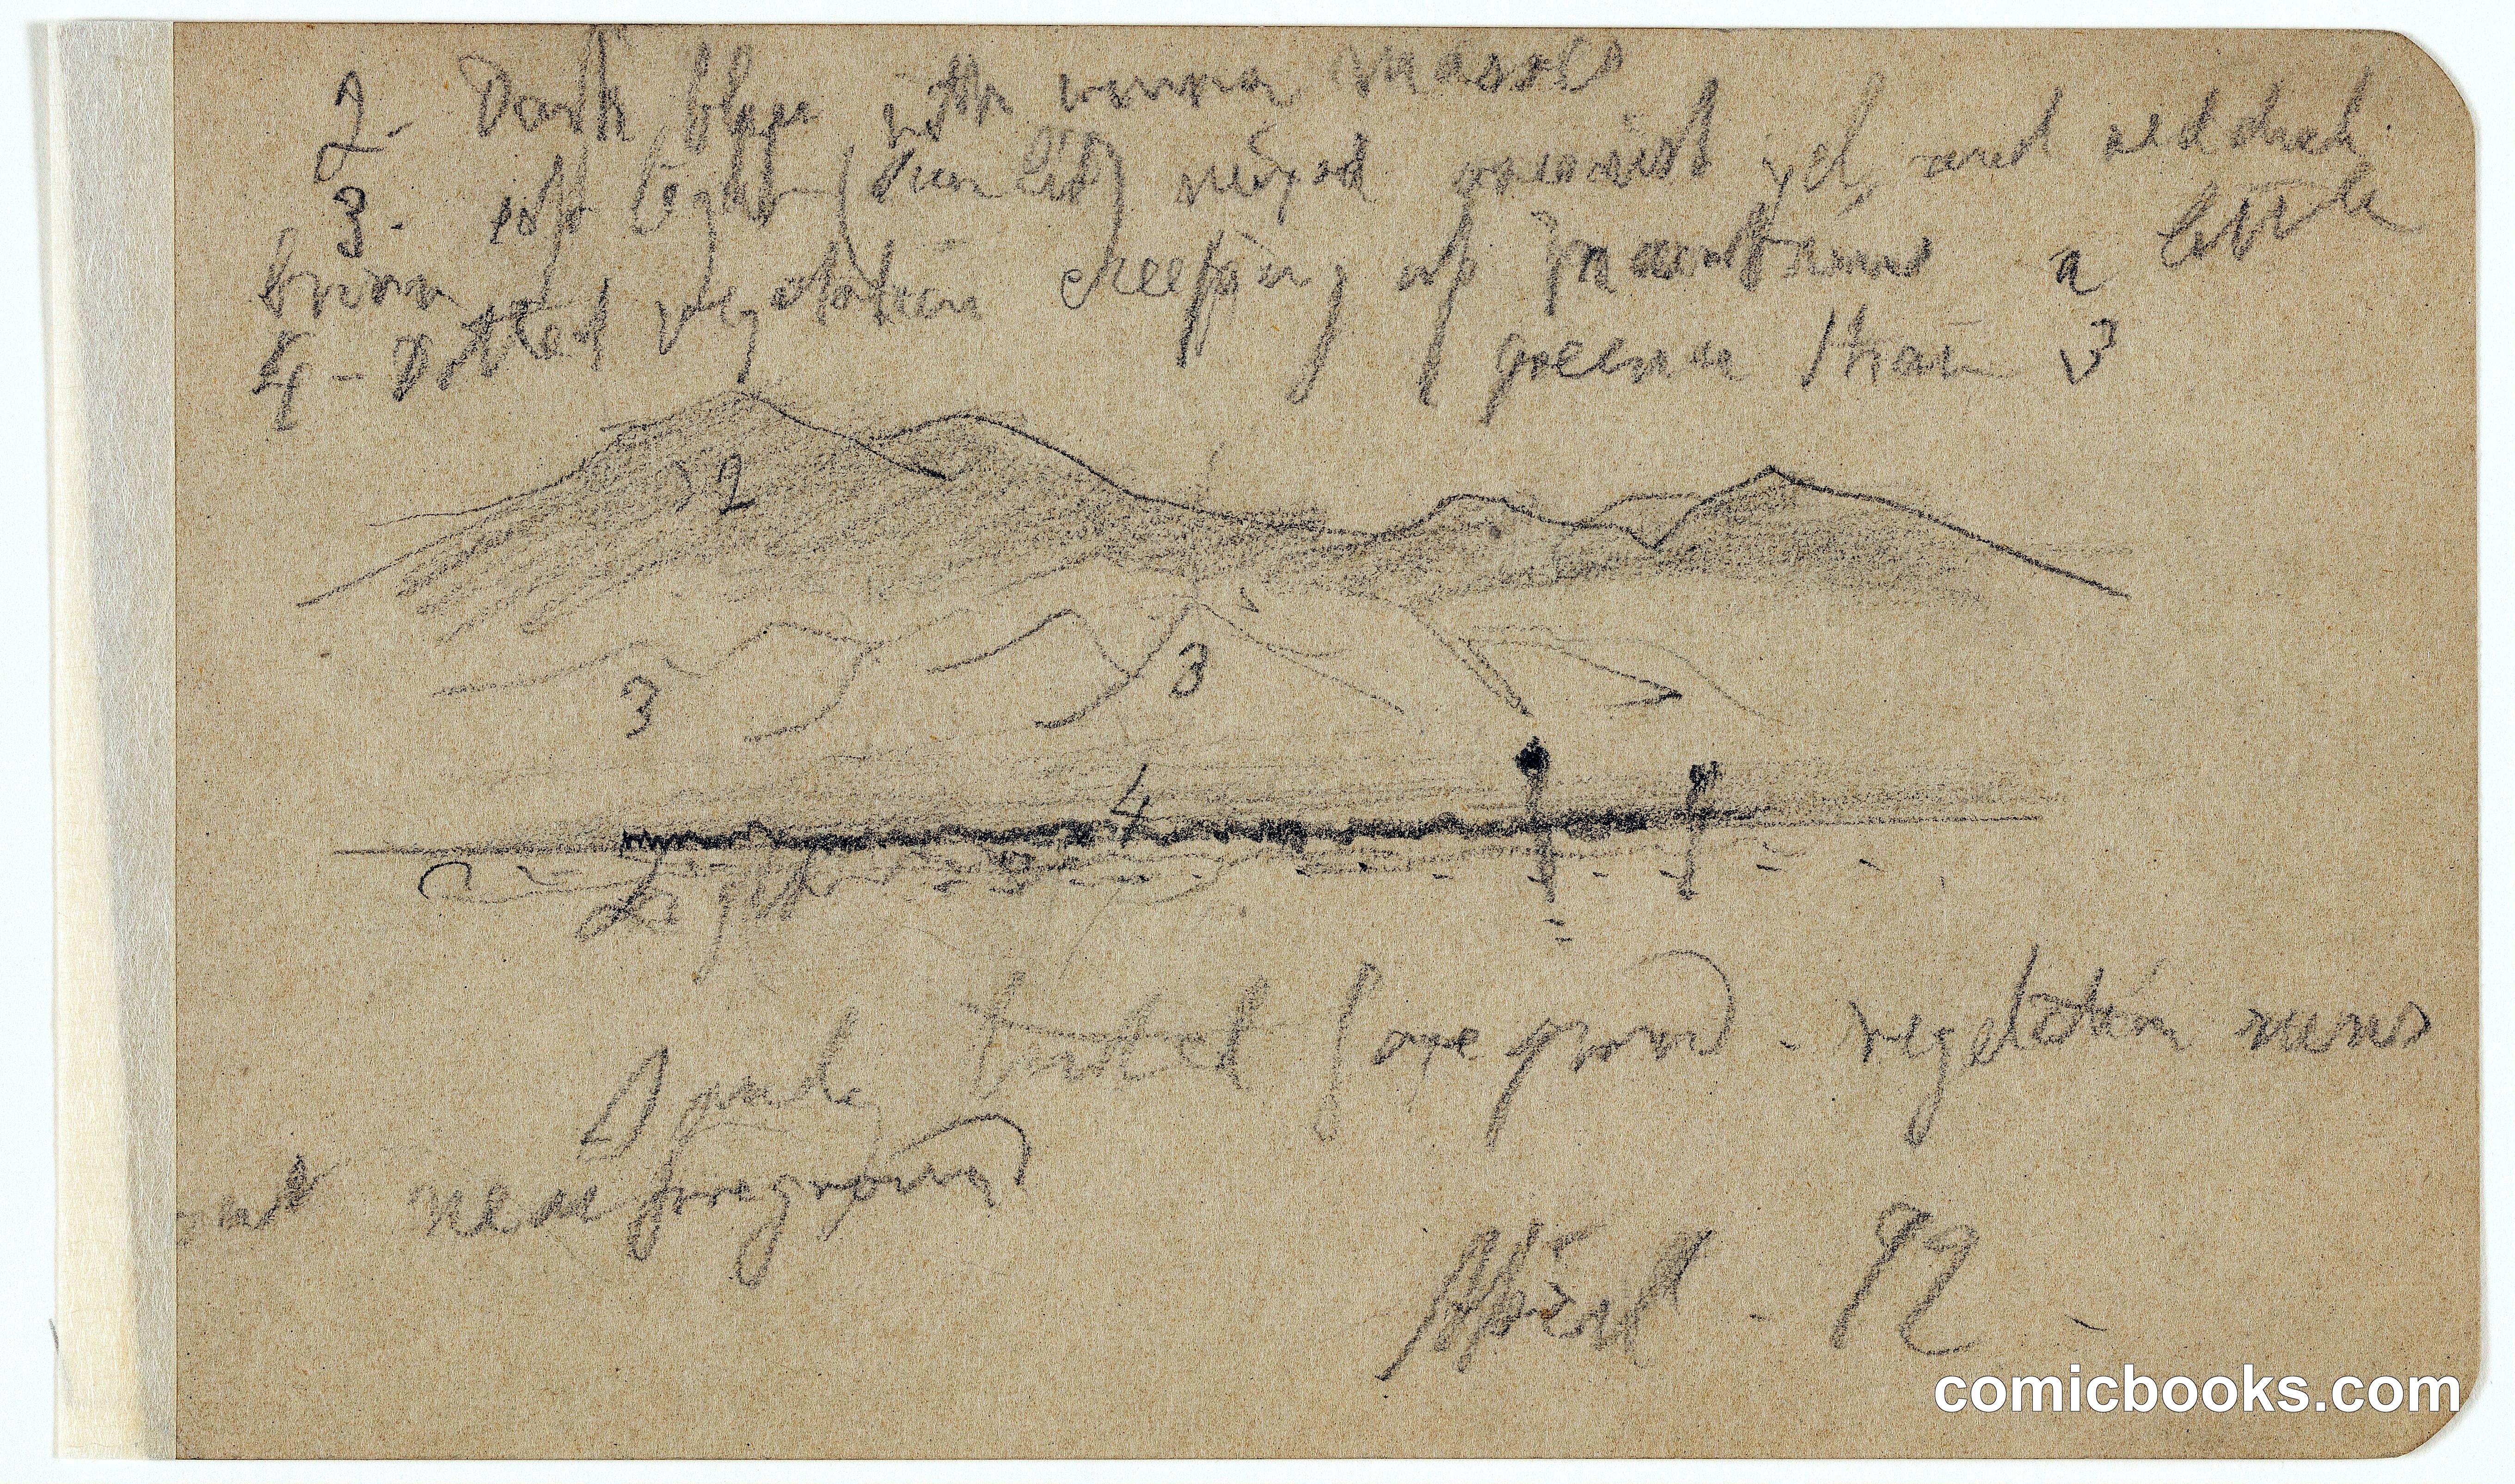 2- Dark blue with warm masses
3- soft light (sun lit) warmish yel and reddish
brown
4- Dotted vegetation creeping up mountains a little
greener than 3
2
3
3
4
Light
Sandy tinted foreground - vegetation runs
out near foreground
April - 92 -
comicbooks.com